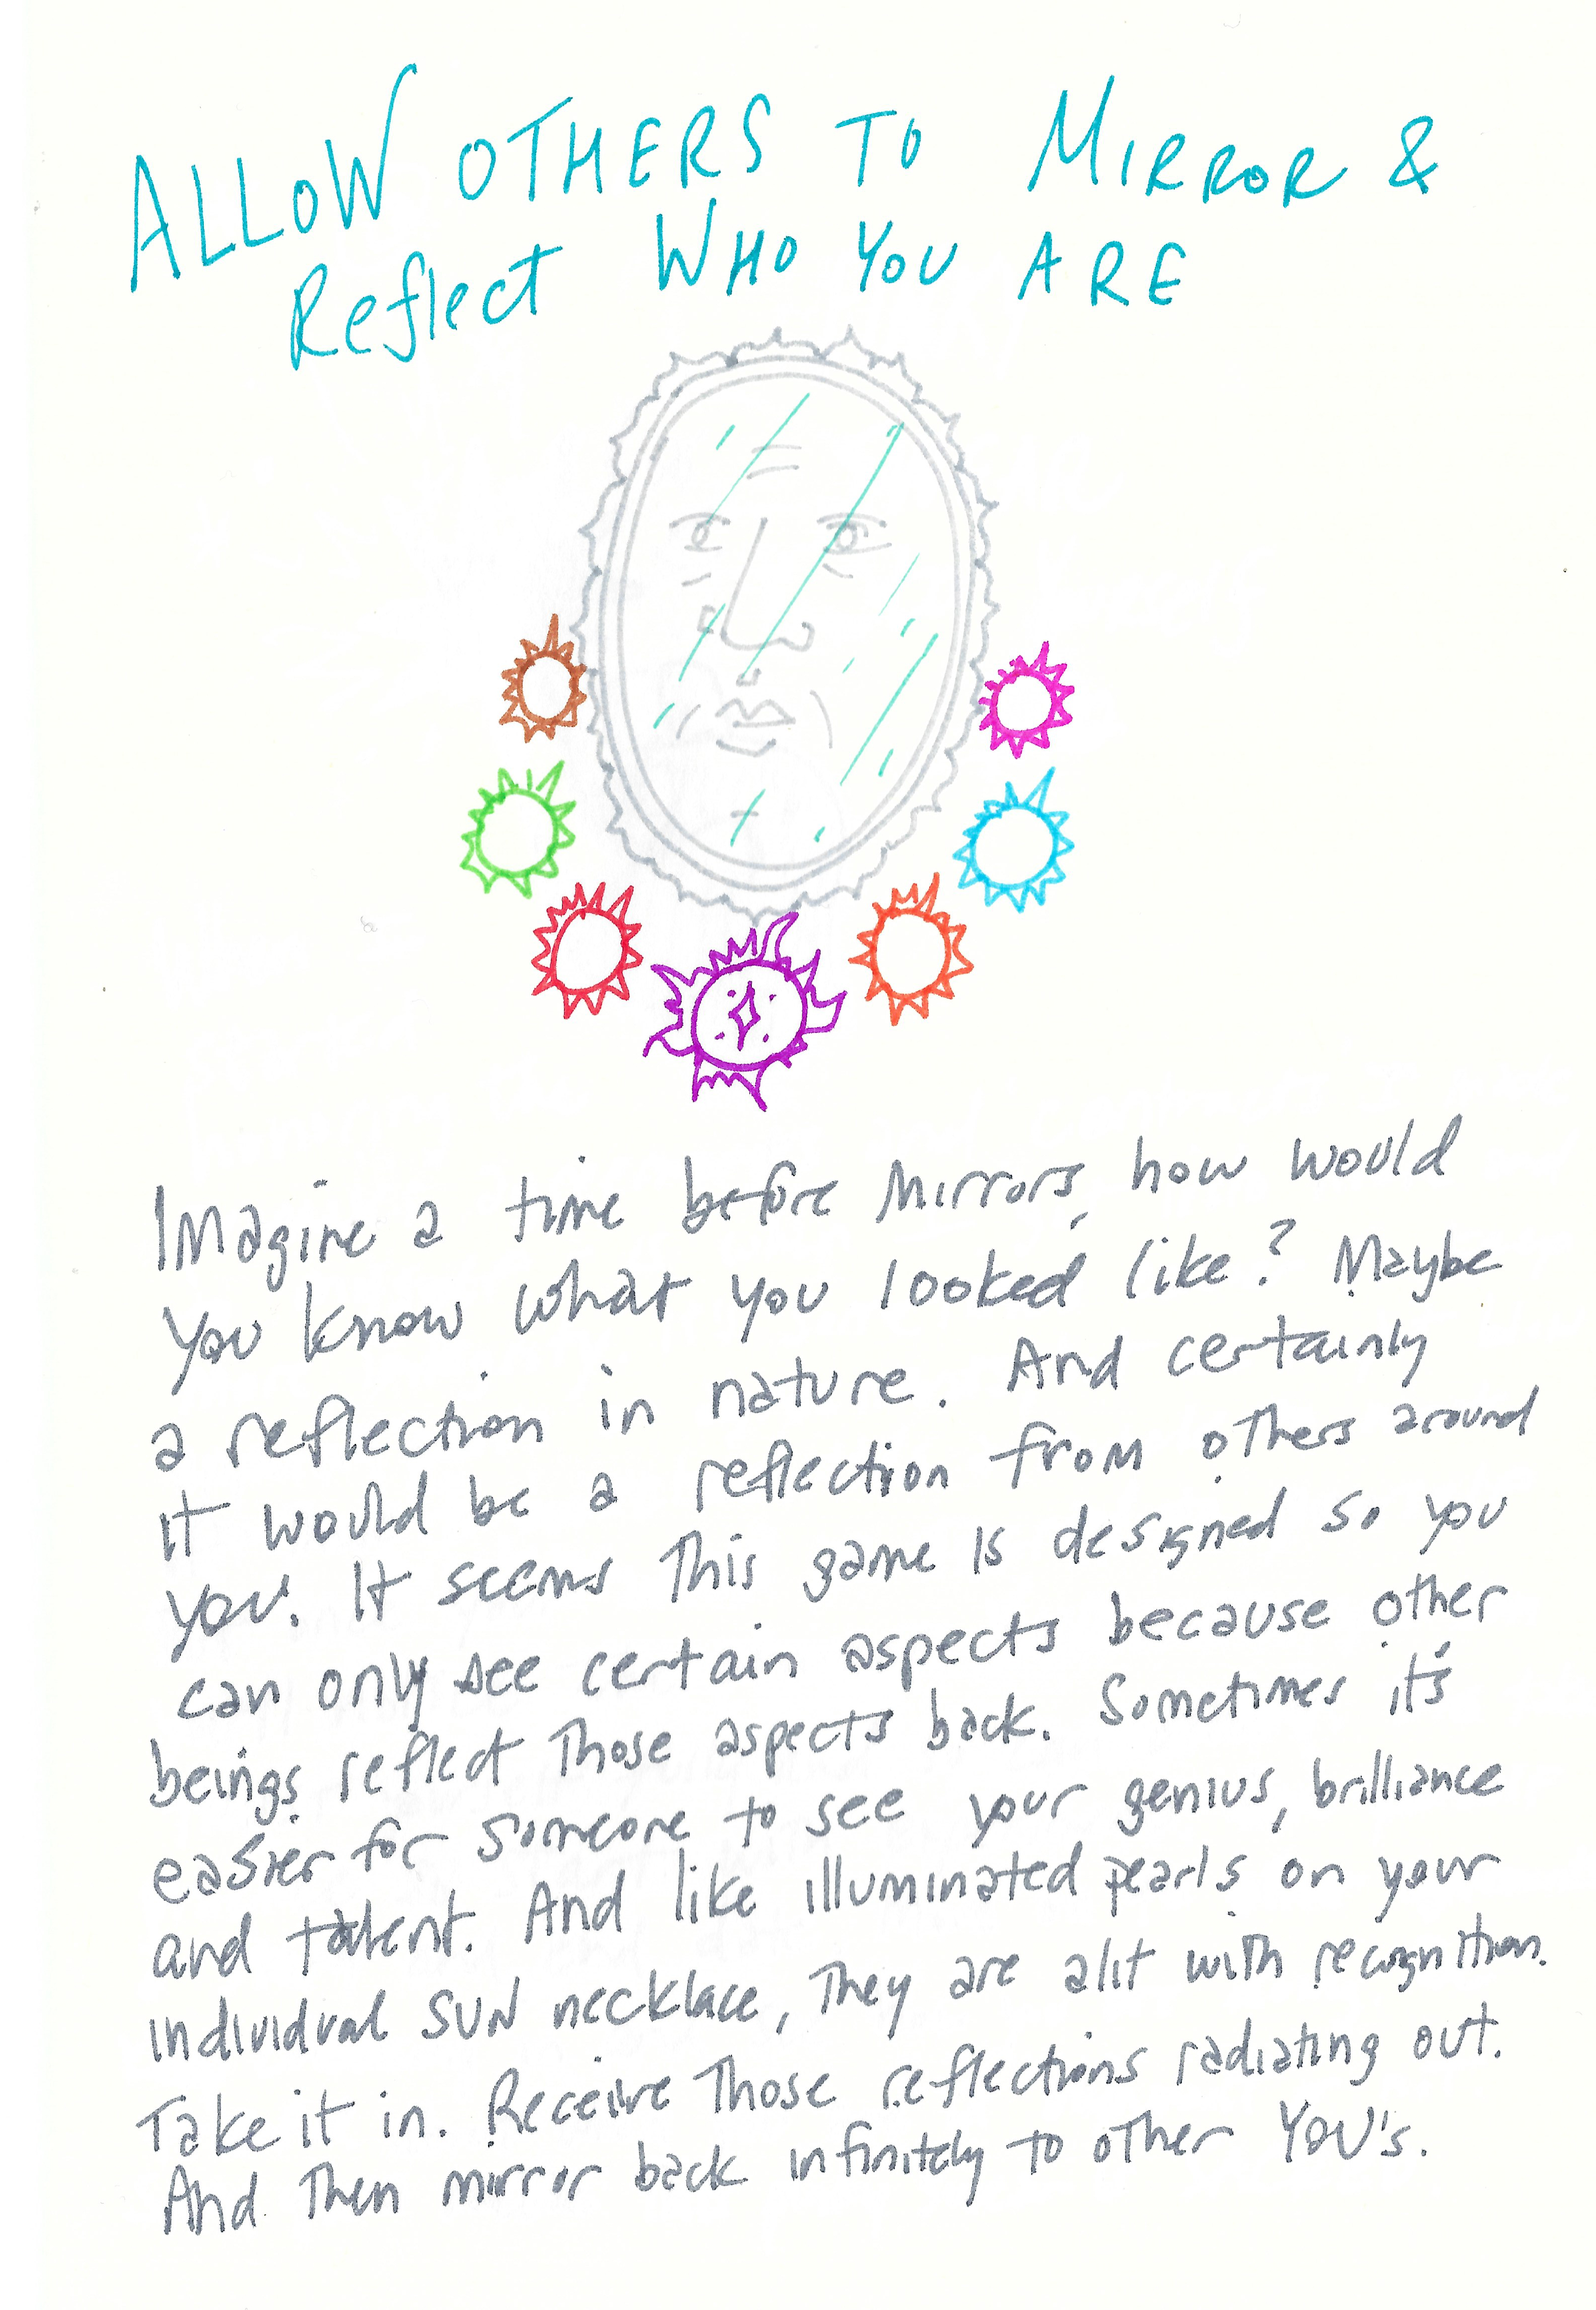 ALLOW OTHERS TO MIRROR &
Reflect WHO YOU ARE
Imagine a time before Mirrors, how would
you know what you looked like? Maybe
a reflection in nature. And certainly
it would be a reflection from others around
you. It seems This game is designed so you
can only see certain aspects because other
beings reflect Those aspects back. Sometimes it's
easier for someone to see your genius, brilliance
and talent. And like illuminated pearls on your
individual SUN necklace, They are alit with recognition.
Take it in. Receive Those reflections radiating out.
And Then mirror back infinitely to other YOU's.